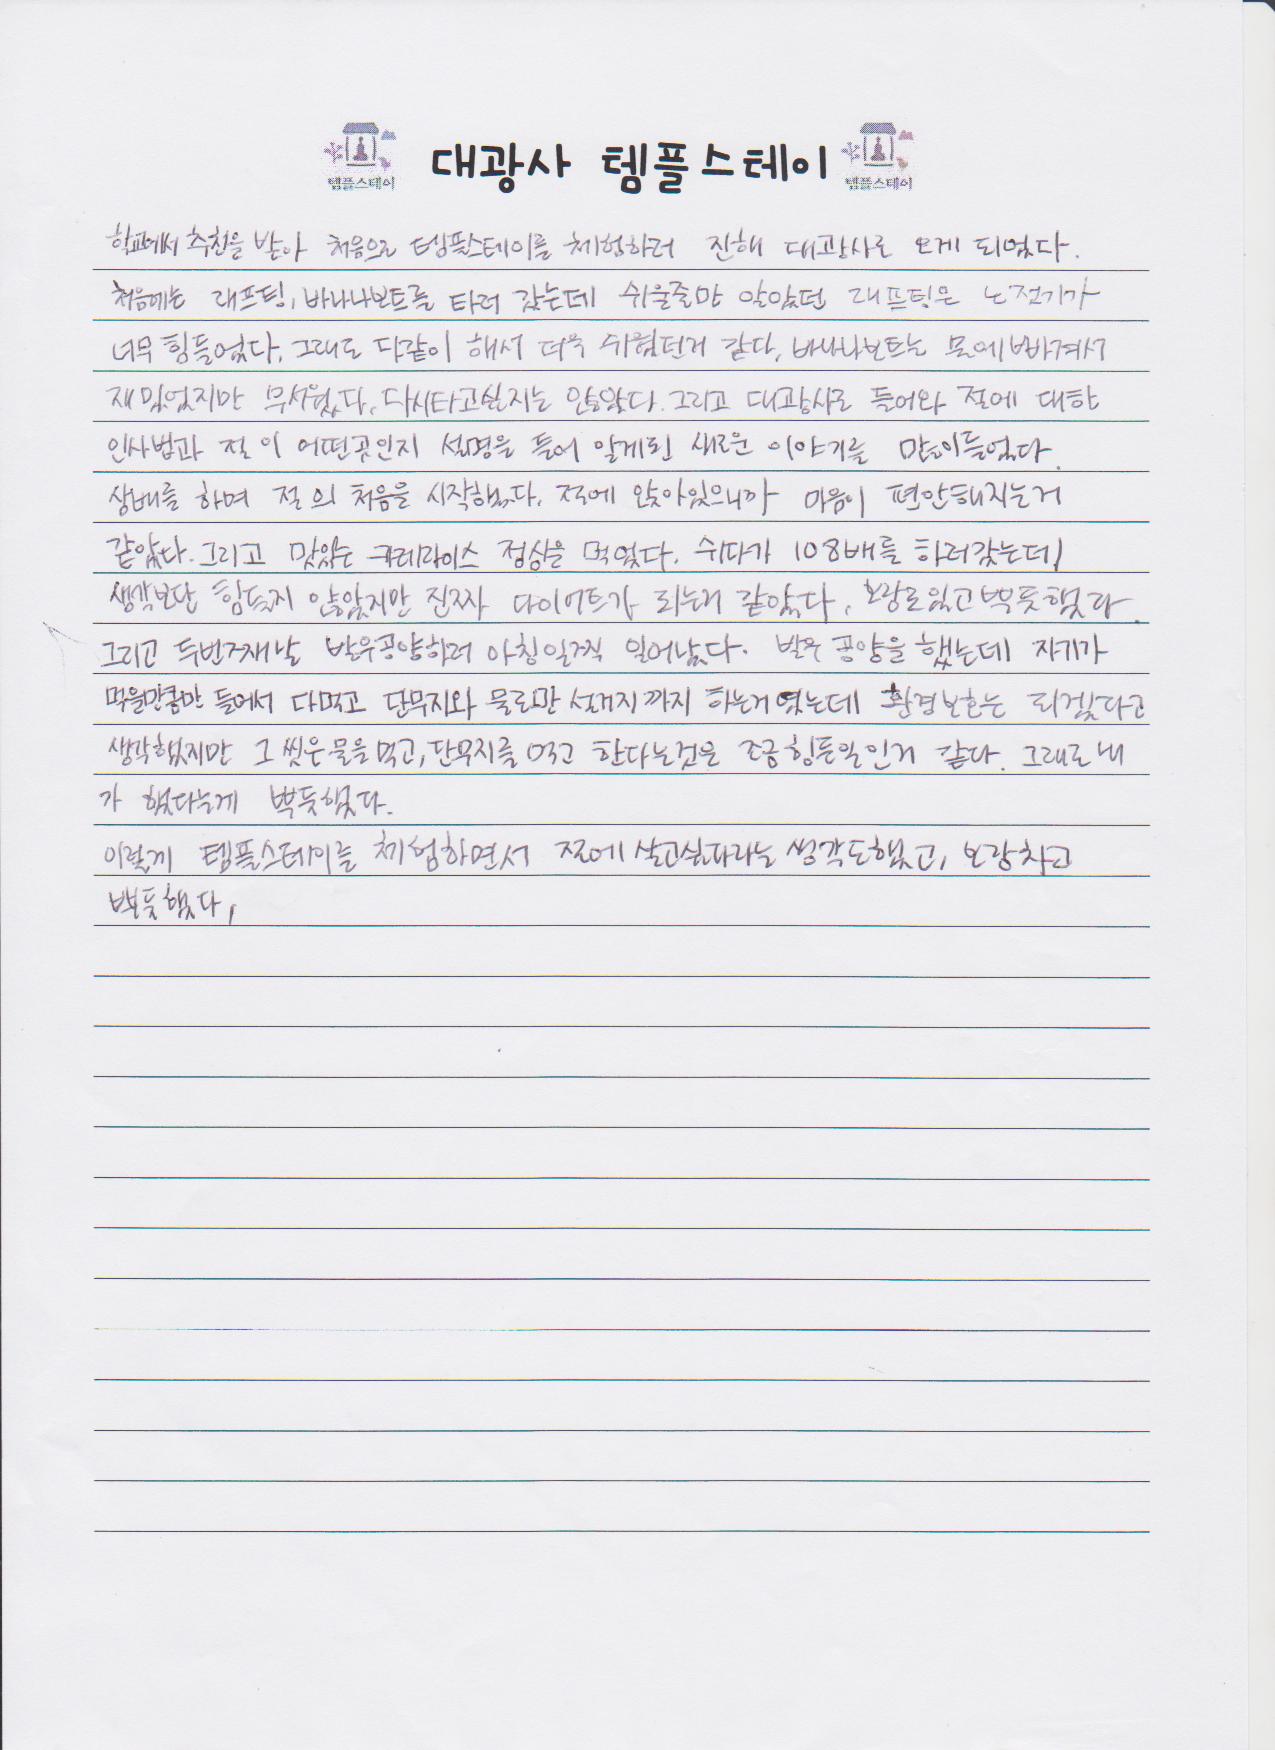 템플스테이 대광사 템플스테이 템플스테이
학교에서 추천을 받아 처음으로 템플스테이를 체험하러 진해 대광사로 오게 되었다.
처음에는 래프팅, 바나나보트를 타러 갔는데 쉬울줄만 알았던 래프팅은 노젓기가
너무 힘들었다. 그래도 다같이 해서 더욱 쉬웠던거 같다, 바나나보트는 물에빠져서
재밌었지만 무서웠다, 다시타고싶지는 않았다. 그리고 대광사로 들어와 절에 대한
인사법과 절 이 어떤곳인지 설명을 들어 알게된 새로운 이야기를 많이들었다.
삼배를 하며 절 의 처음을 시작했다. 절에 앉아있으니까 마음이 편안해지는거
같았다. 그리고 맛있는 카레라이스 정심을 먹었다. 쉬다가 108배를 하러갔는데,
생각보단 힘들지 않았지만 진짜 다이어트가 되는거 같았다, 보람도있고 뿌듯했다.
그리고 두번째날 발우공양하러 아침일찍 일어났다. 발우 공양을 했는데 자기가
먹을만큼만 들어서 다먹고 단무지와 물로만 설거지까지 하는거였는데 환경보호는 되겠다고
생각했지만 그 씻은물을 먹고, 단무지를 먹고 한다는것은 조금힘든일인거 같다. 그래도 내
가 했다는게 뿌듯했다.
이렇게 템플스테이를 체험하면서 절에 살고싶다라는 생각도했고, 보람차고
뿌듯했다,